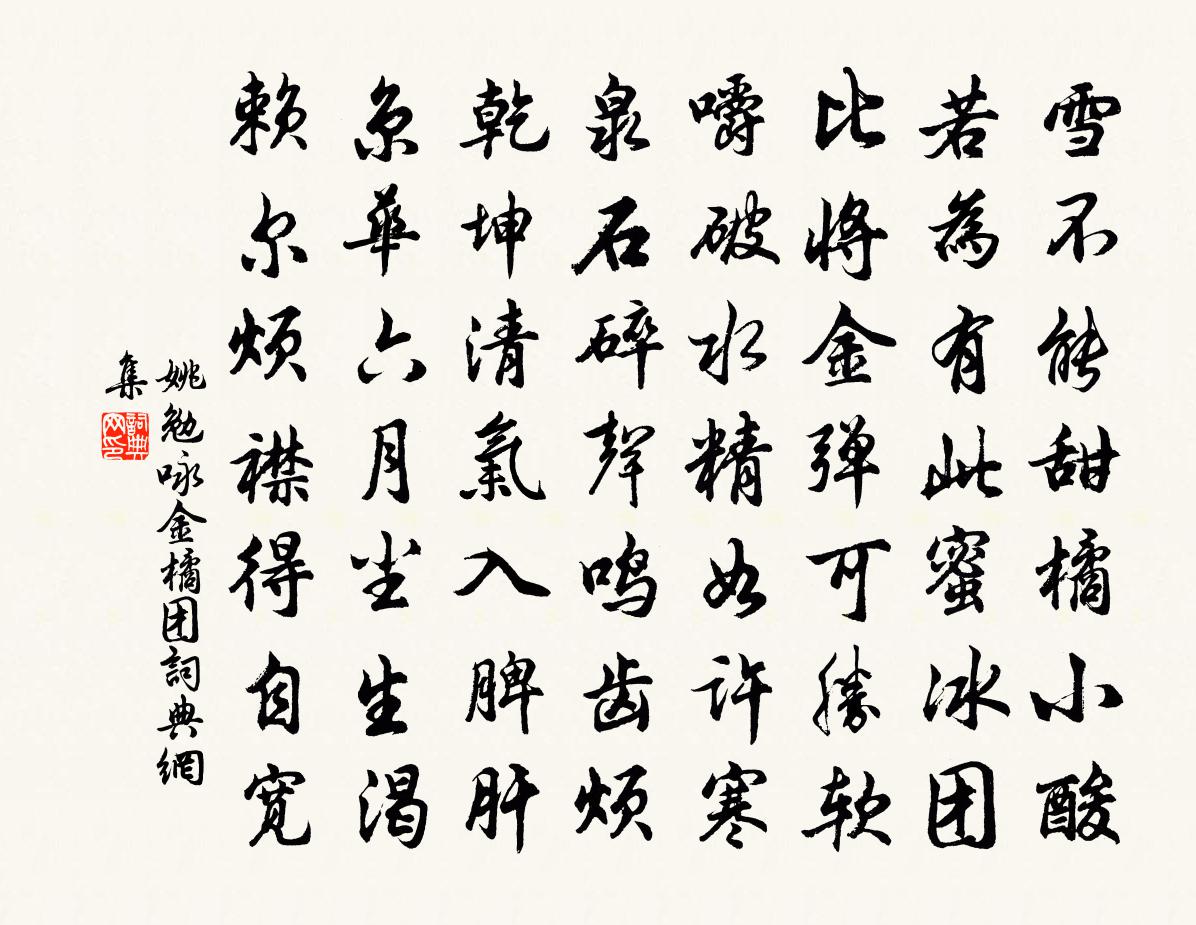 雪不能甜橘小酸
若為有此蜜冰团
比将金弹可勝软
嚼破水精如许寒
泉石碎聲鳴齿烦
乾坤清氣入脾肝
京華六月尘生渴
赖尔烦襟得自宽
姚勉咏金橘团詞典網
集
詞典
网印